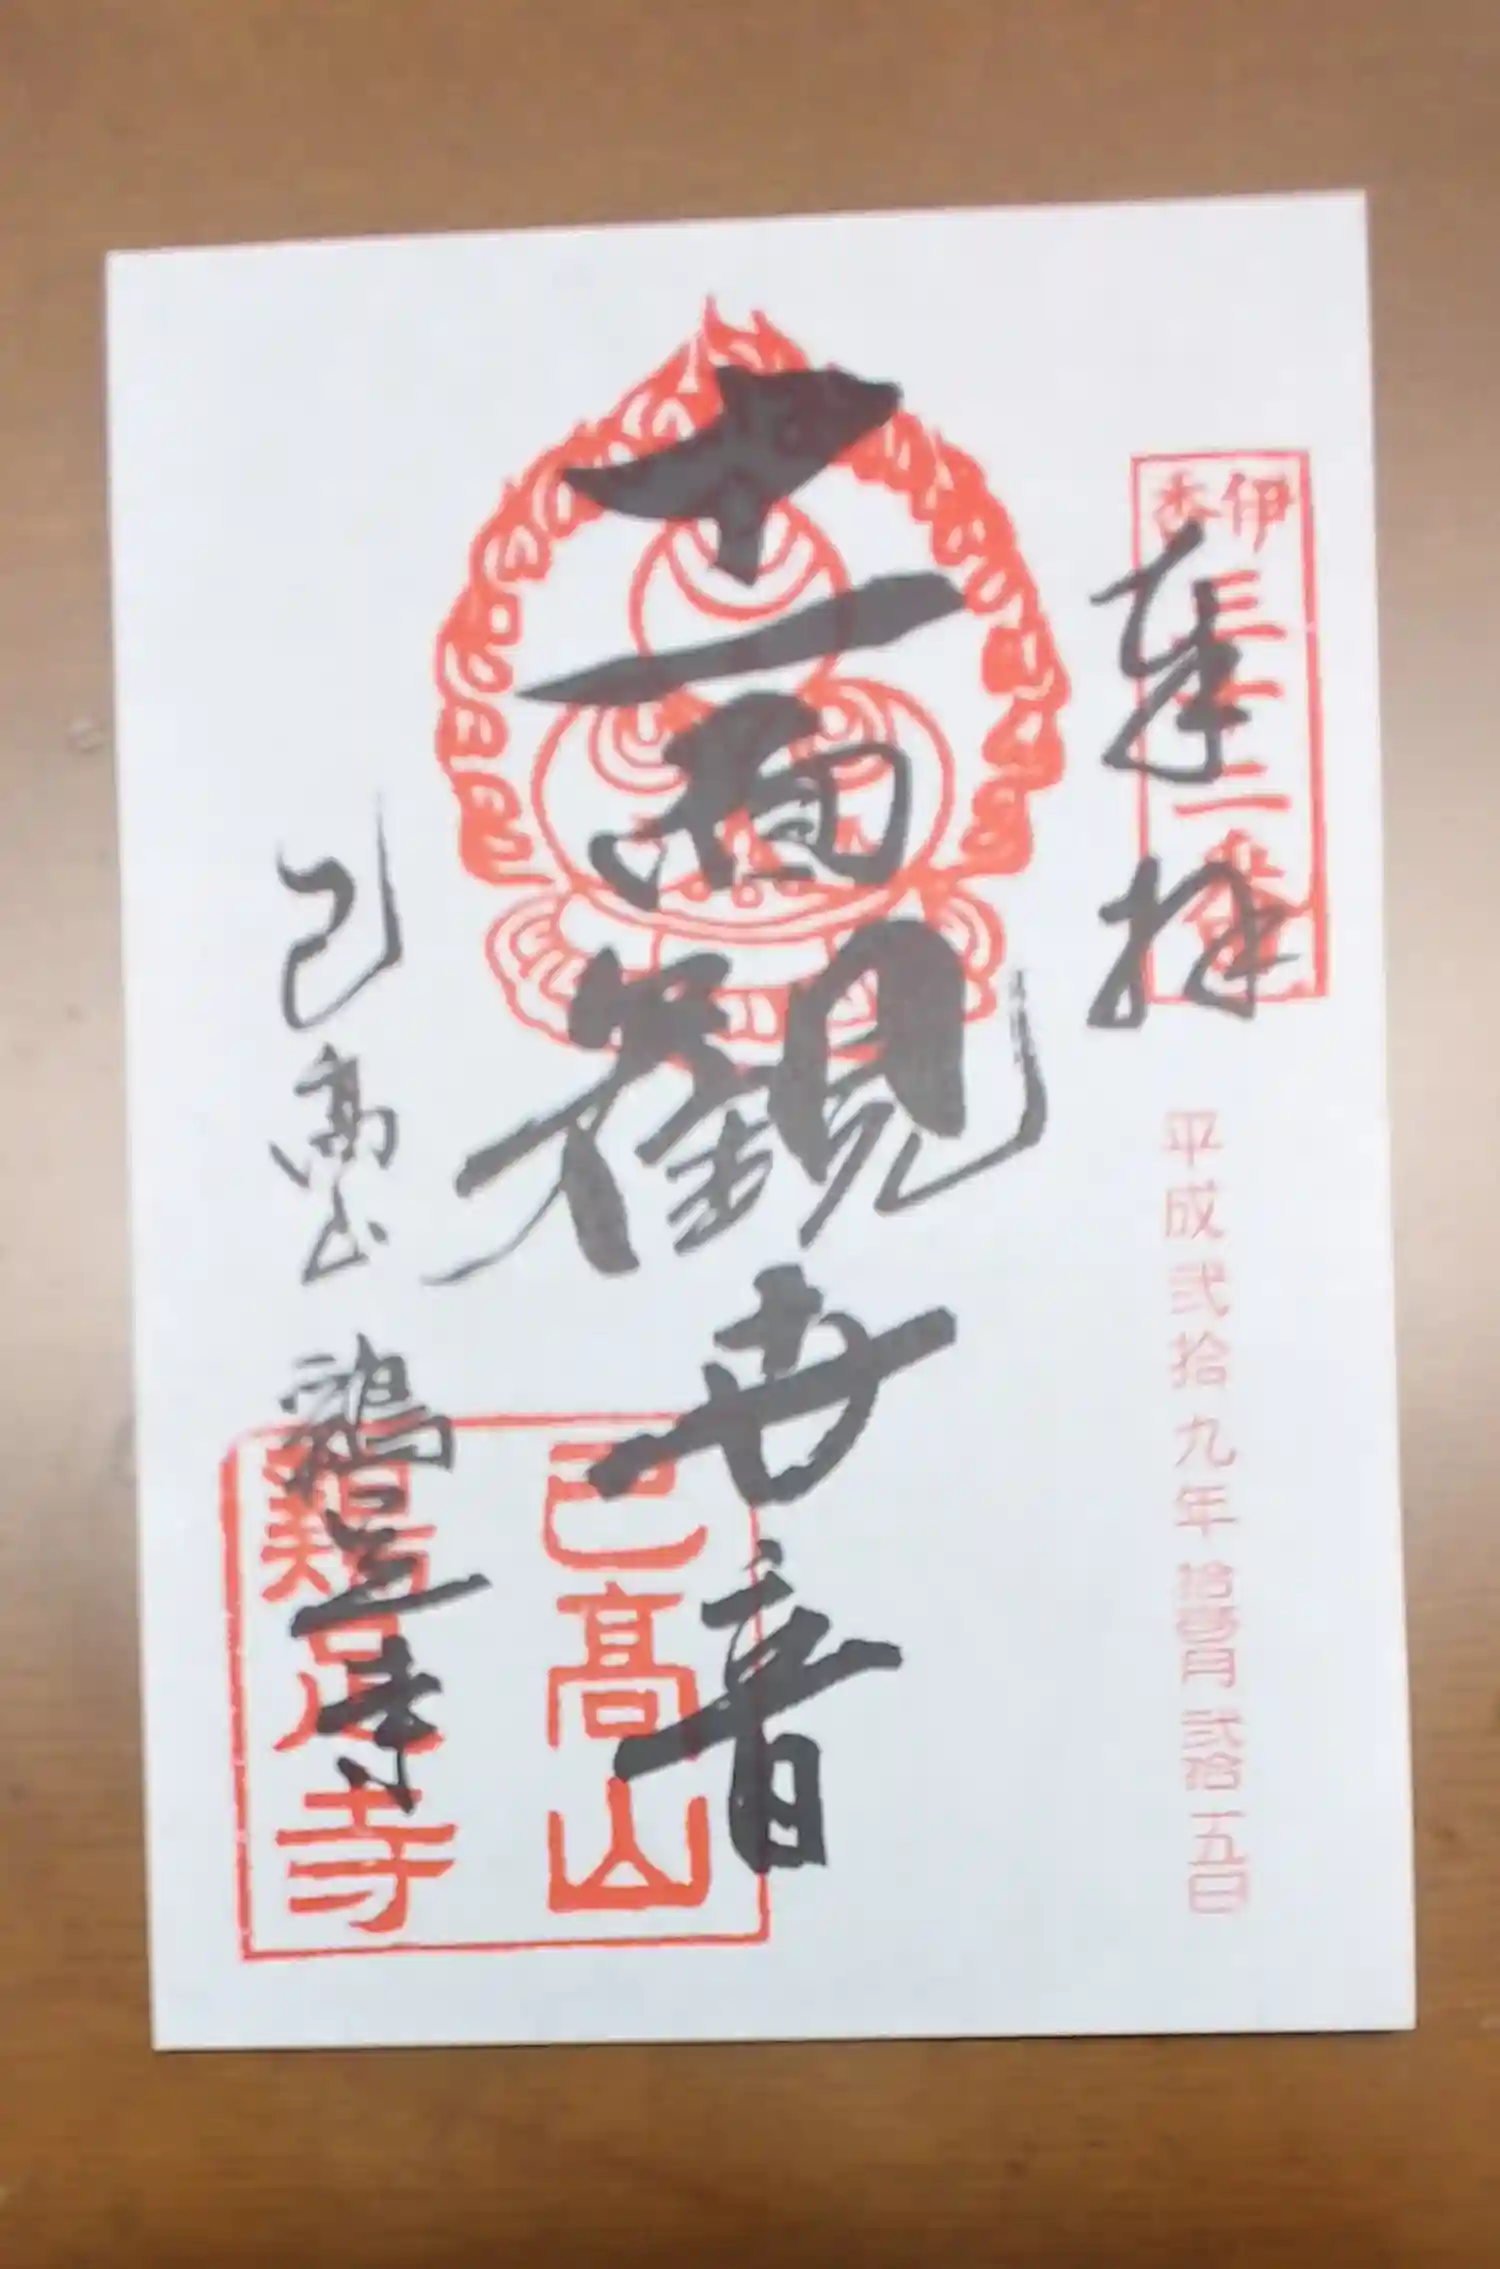 伊香
三十二番
奉拝
平成弐拾九年拾壱月弐拾五日
十一面観世音
己高山 鶏足寺
己高山
鶏足寺